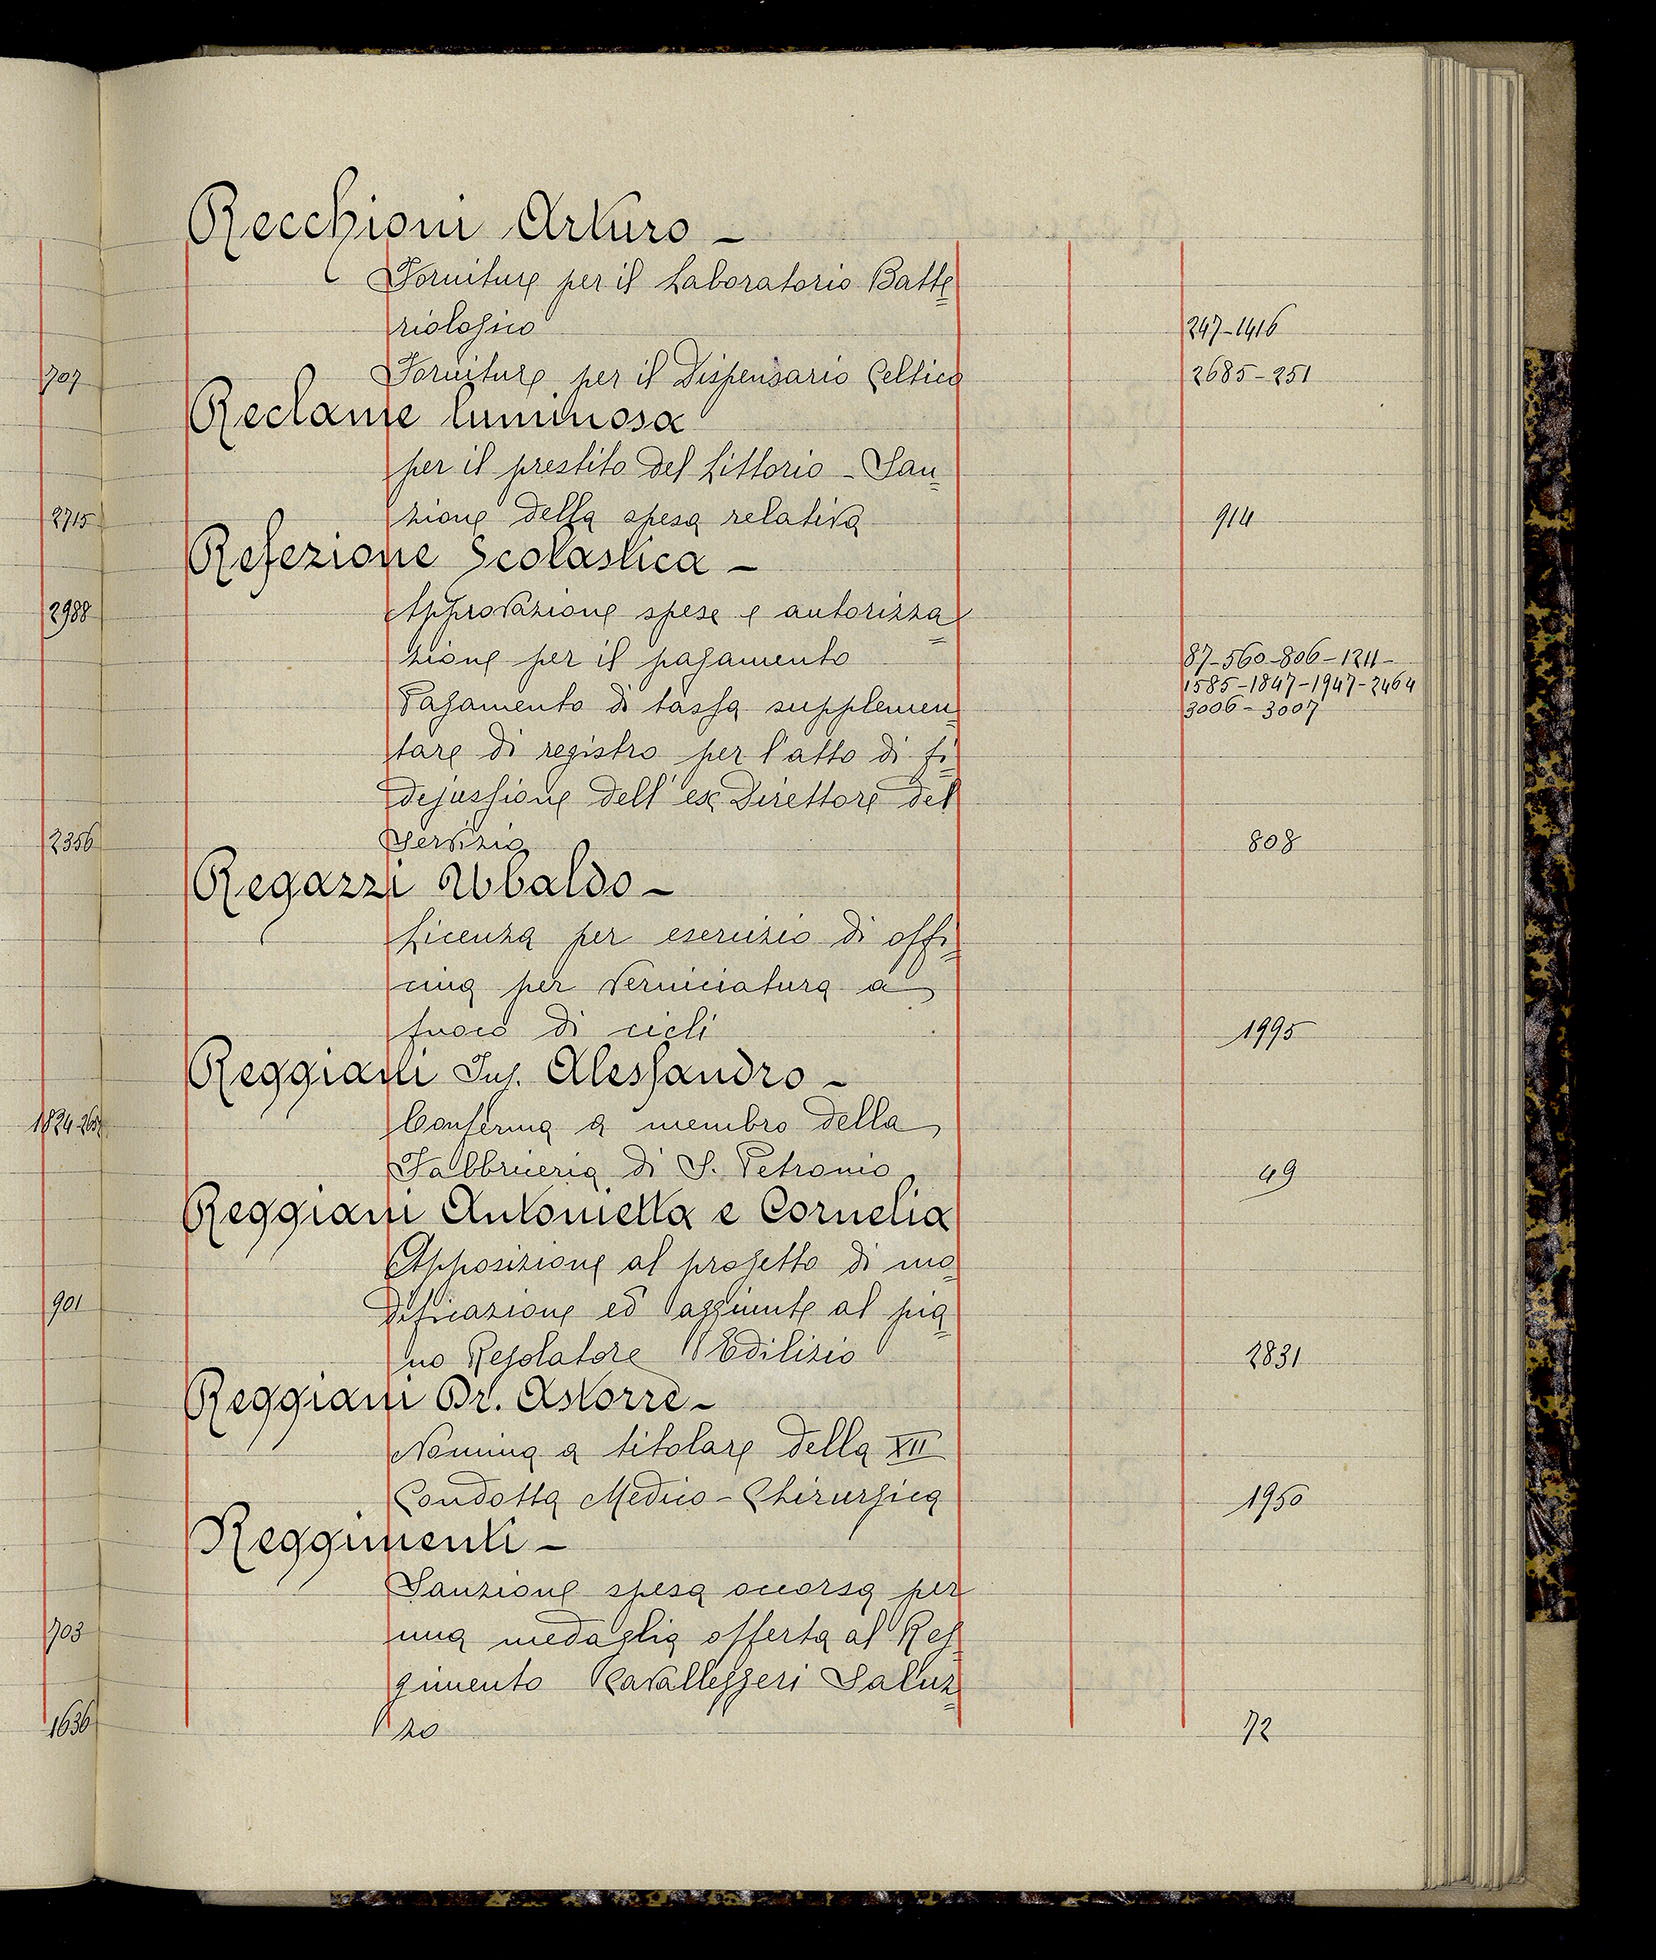 Recchioni Arturo -
Forniture per il Laboratorio Batte=
riologico 247-1416
Forniture per il Dispensario Celtico 2685-251
Reclame luminosa
per il prestito del Littorio - San=
zione della spesa relativa 914
Refezione Scolastica -
Approvazione spese e autorizza=
zione per il pagamento 87-560-806-1211-
1585-1847-1947-2464
Pagamento di tassa supplemen= 3006-3007
tare di registro per l'atto di fi=
dejussione dell'ex Direttore del
Servizio 808
Regazzi Ubaldo -
Licenza per esercizio di offi=
cina per verniciatura a
fuoco di cicli 1995
Reggiani Ing. Alessandro -
Conferma a membro della
Fabbriceria di S. Petronio 49
Reggiani Antonietta e Cornelia
Opposizione al progetto di mo=
dificazione ed aggiunte al pia=
no Regolatore Edilizio 2831
Reggiani Dr. Astorre -
Nomina a titolare della XII
Condotta Medico-Chirurgica 1950
Reggimenti -
Sanzione spesa occorsa per
una medaglia offerta al Reg=
gimento Cavalleggeri Saluz=
zo 72
707
2715
2988
2356
901
703
1636